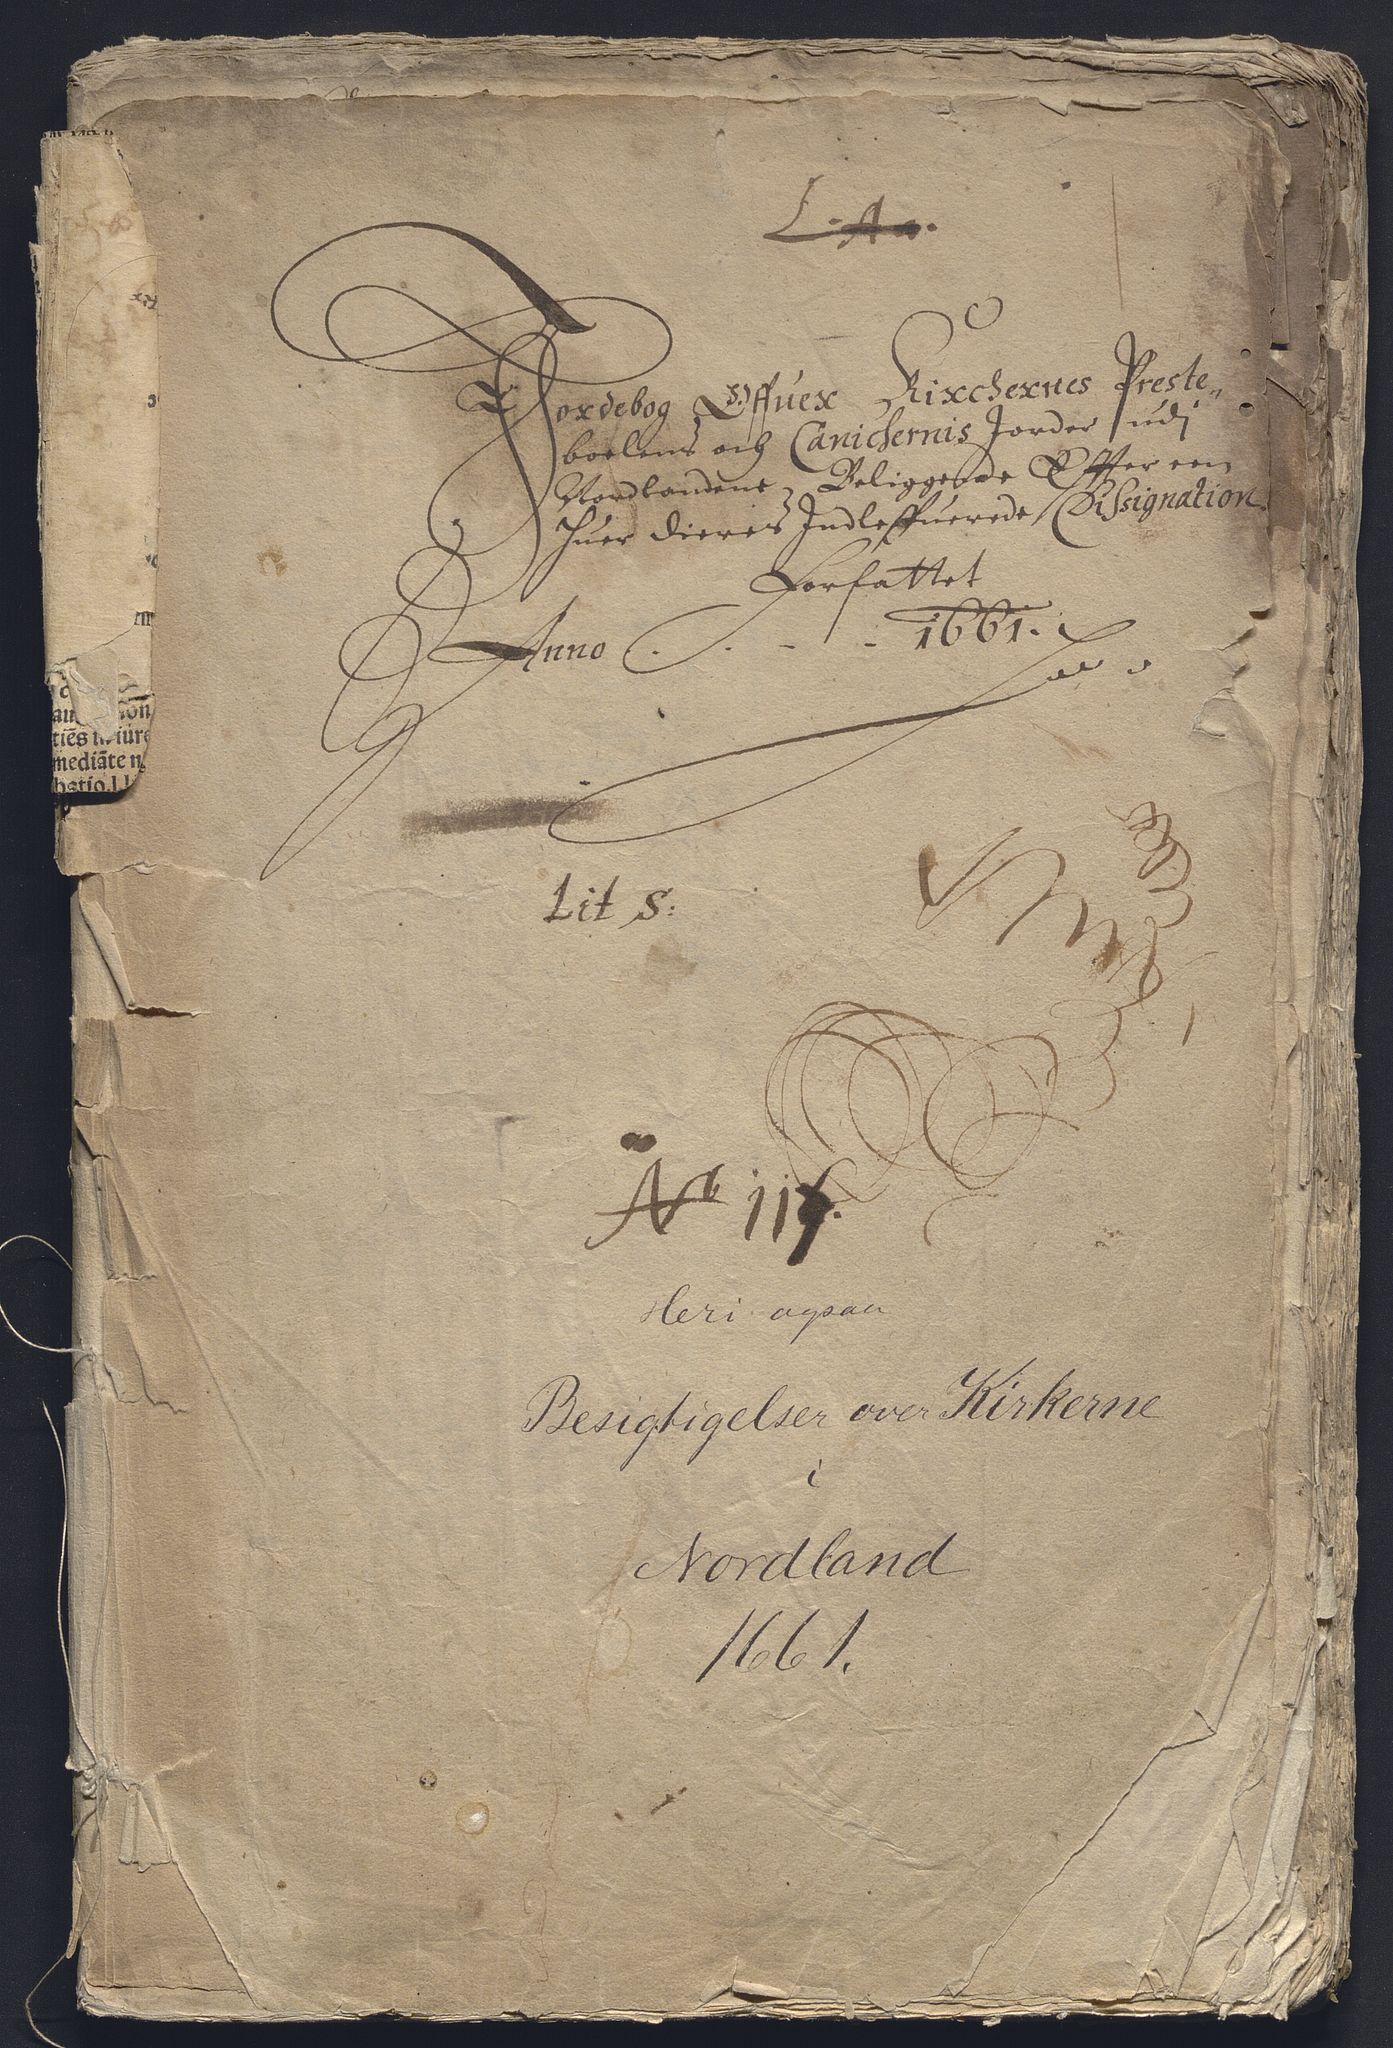 L. A a.
Jordebog Offuer Kirchernes Preste„
boelens och Canichernis Jorder udj
Nordlandene, Beliggende Effter een
huer dieris Indleffuerede Dissignation.
Forfattet
Anno . . - - 1661.
Lit S:
No 117.
Heri ogsaa
Besigtigelser over Kirkerne
i
Nordland
1661.
tiēs in iure
mediāte n